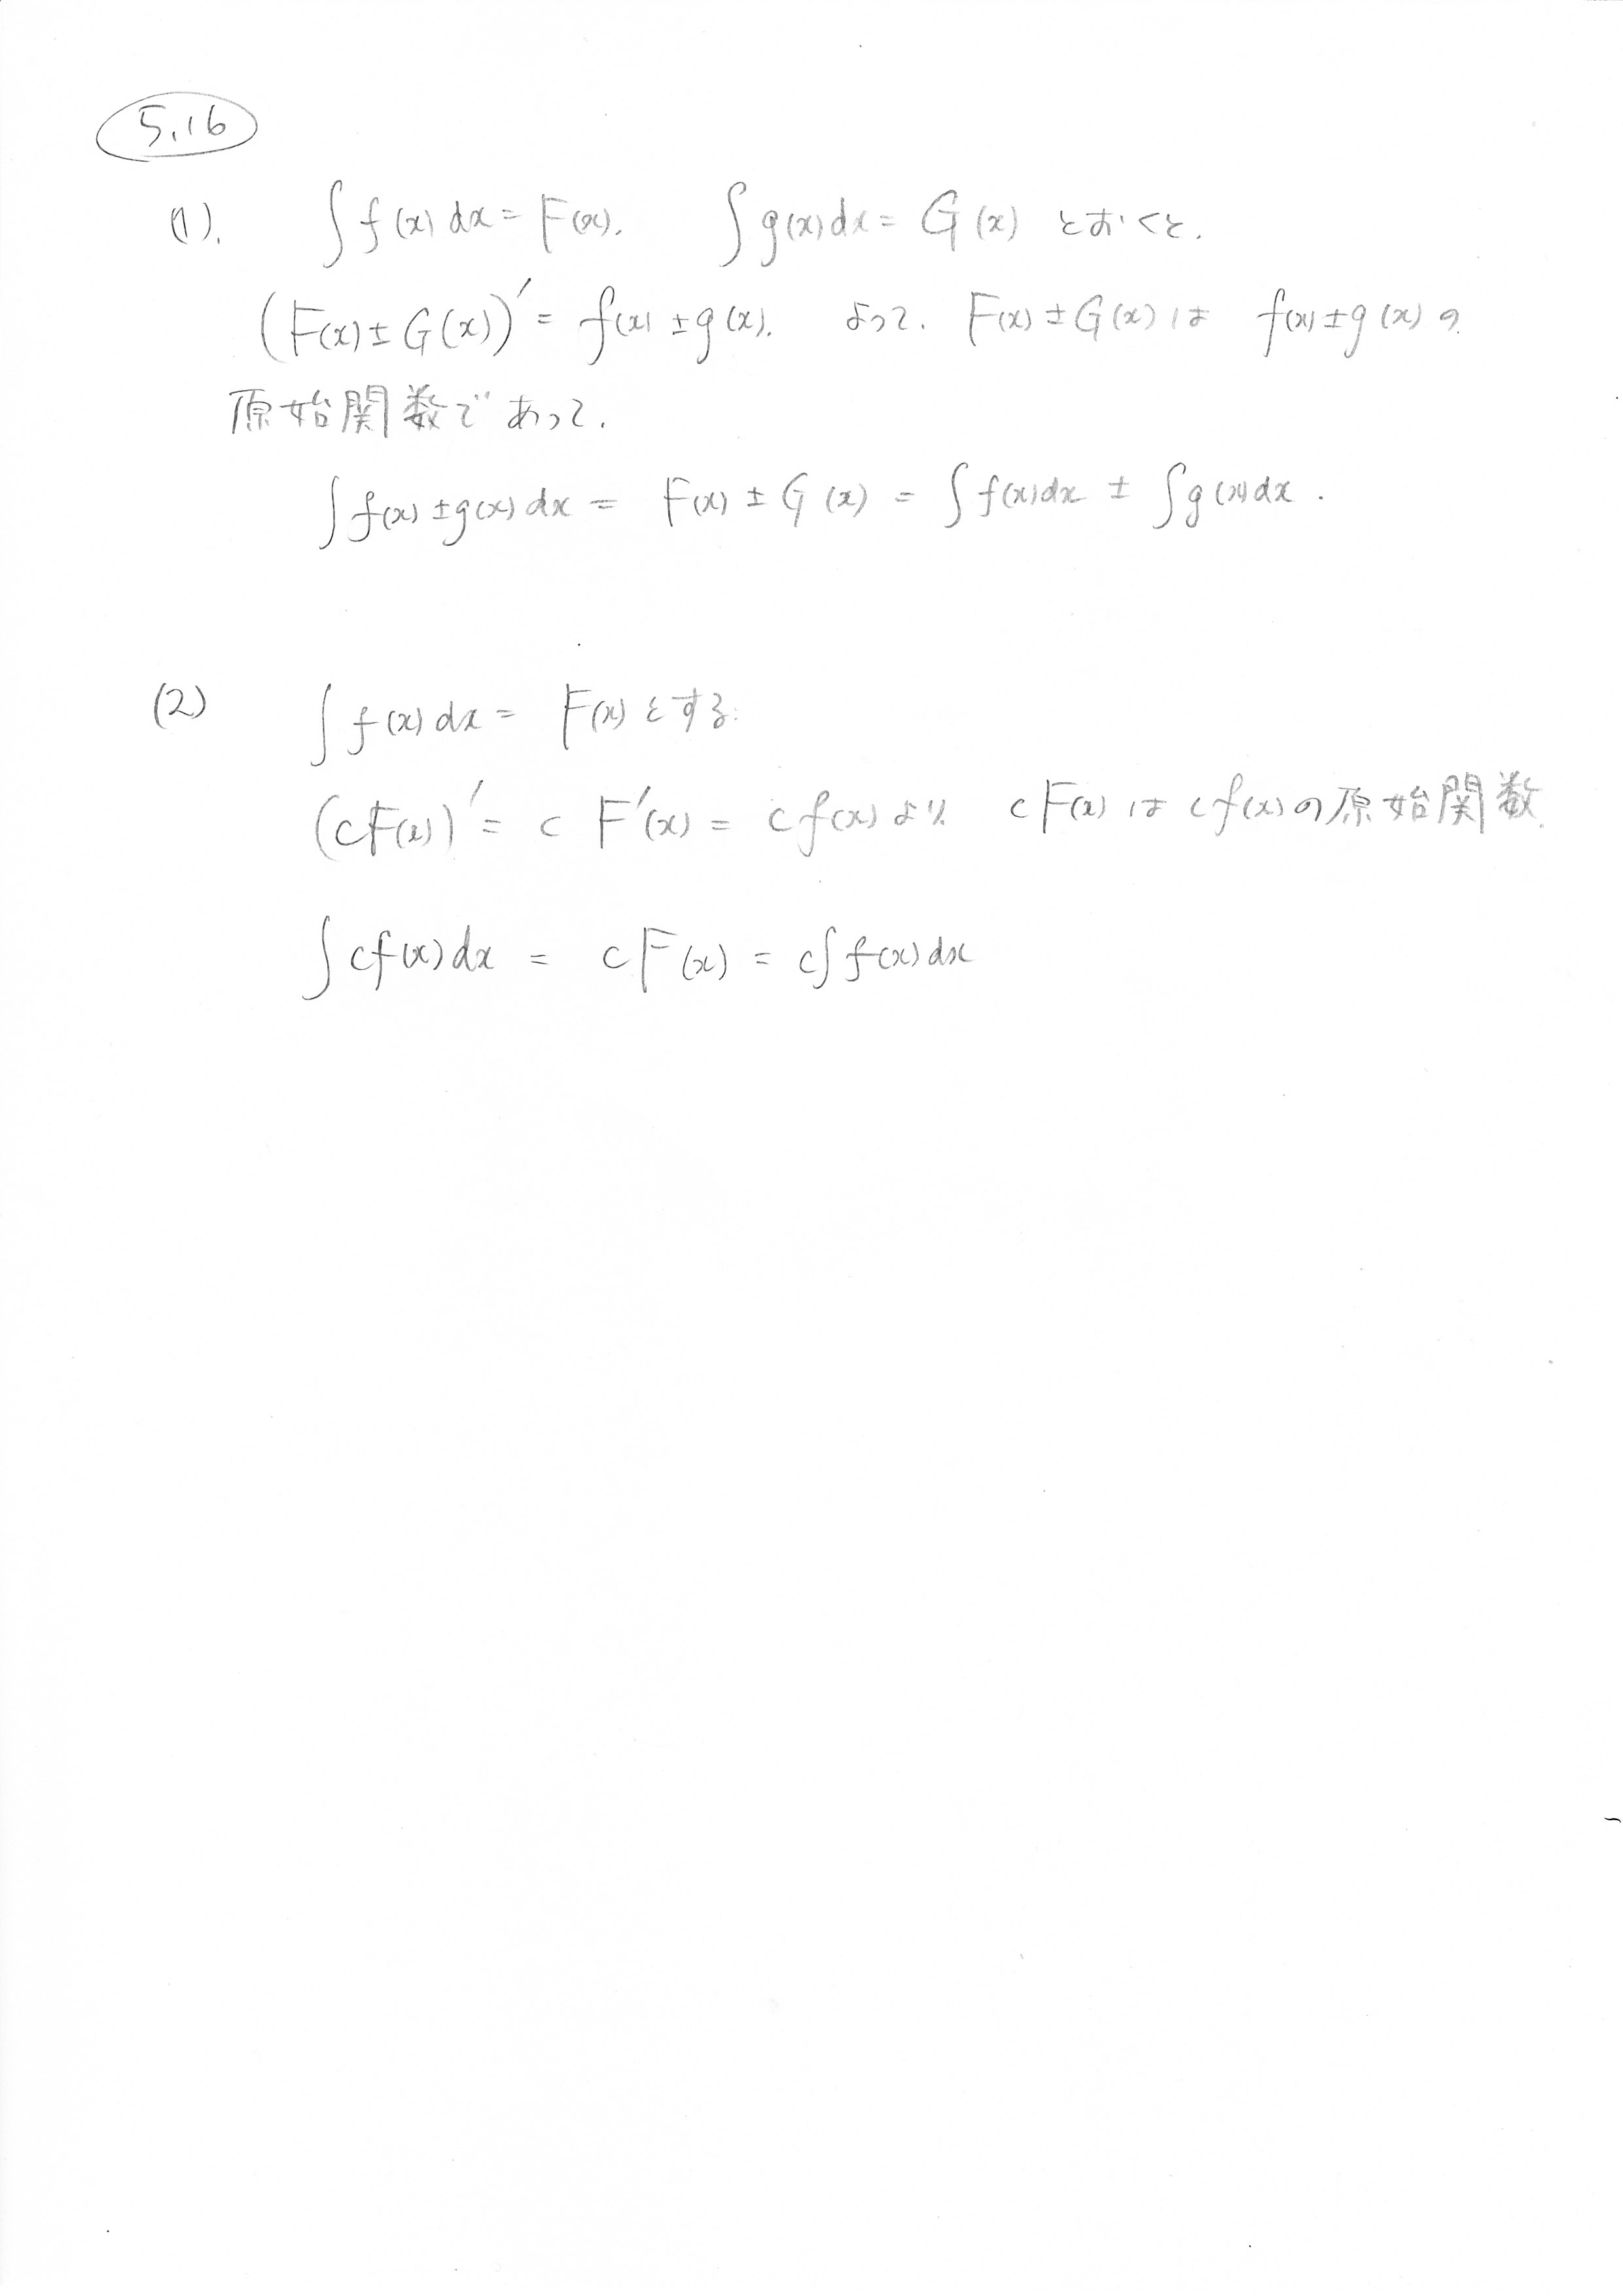 5.16
(1). ∫f(x)dx = F(x). ∫g(x)dx = G(x) とおくと.
(F(x)±G(x))' = f(x)±g(x). よって. F(x)±G(x)は f(x)±g(x)の
原始関数であって.
∫f(x)±g(x)dx = F(x)±G(x) = ∫f(x)dx ± ∫g(x)dx.
(2) ∫f(x)dx = F(x)とする.
(cF(x))' = c F'(x) = cf(x)より. cF(x)はcf(x)の原始関数.
∫cf(x)dx = cF(x) = c∫f(x)dx